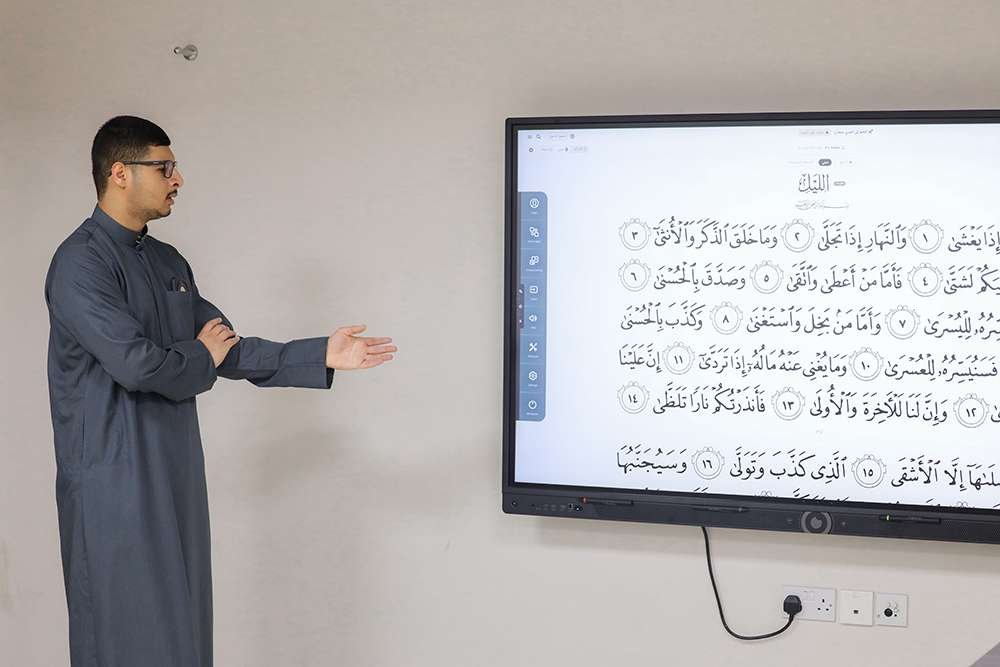 الليل
إِذَا يَغْشَىٰ ١ وَٱلنَّهَارِ إِذَا تَجَلَّىٰ ٢ وَمَا خَلَقَ ٱلذَّكَرَ وَٱلْأُنثَىٰٓ ٣
يَكُمْ لَشَتَّىٰ ٤ فَأَمَّا مَنْ أَعْطَىٰ وَٱتَّقَىٰ ٥ وَصَدَّقَ بِٱلْحُسْنَىٰ ٦
سِّرُهُۥ لِلْيُسْرَىٰ ٧ وَأَمَّا مَنۢ بَخِلَ وَٱسْتَغْنَىٰ ٨ وَكَذَّبَ بِٱلْحُسْنَىٰ
فَسَنُيَسِّرُهُۥ لِلْعُسْرَىٰ ١٠ وَمَا يُغْنِى عَنْهُ مَالُهُۥٓ إِذَا تَرَدَّىٰٓ ١١ إِنَّ عَلَيْنَا
١٢ وَإِنَّ لَنَا لَلْـَٔاخِرَةَ وَٱلْأُولَىٰ ١٣ فَأَنذَرْتُكُمْ نَارًا تَلَظَّىٰ ١٤
صْلَىٰهَآ إِلَّا ٱلْأَشْقَى ١٥ ٱلَّذِى كَذَّبَ وَتَوَلَّىٰ ١٦ وَسَيُجَنَّبُهَا